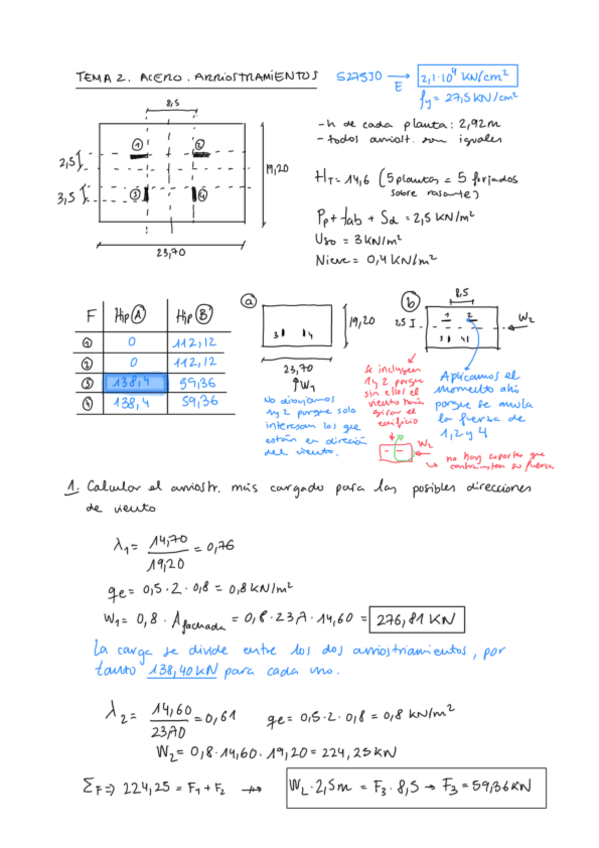 TEMA 2. ACERO. ARRIOSTRAMIENTOS
S275J0 → E 2,1·10⁴ KN/cm²
fy = 27,5 KN/cm²
8,5
1 2
2,5
3,5
3 4
19,20
23,70
- h de cada planta: 2,92m
- todos arriost. son iguales
HT = 14,6 (5 plantas = 5 forjados
sobre rasante)
Pp + tab + Sd = 2,5 KN/m²
Uso = 3 KN/m²
Nieve = 0,4 KN/m²
F Hip A Hip B
1 0 112,12
2 0 112,12
3 138,4 59,36
4 138,4 59,36
a
3 4
19,20
23,70
↑W1
No dibujamos
1 y 2 porque solo
interesan los que
están en dirección
del viento.
b
8,5
2,5
1 2
3 4
W2
Se incluyen
1 y 2 porque
sin ellos el
viento haría
girar el
edificio
W2
no hay soportes que
contrarresten su fuerza
Aplicamos el
momento ahí
porque se anula
la fuerza de
1, 2 y 4
1. Calcular el arriostr. más cargado para las posibles direcciones
de viento
λ1 = 14,70 / 19,20 = 0,76
qe = 0,5 · 2 · 0,8 = 0,8 KN/m²
W1 = 0,8 · A fachada = 0,8 · 23,7 · 14,60 = 276,81 KN
La carga se divide entre los dos arriostriamientos, por
tanto 138,40 KN para cada uno.
λ2 = 14,60 / 23,70 = 0,61 qe = 0,5 · 2 · 0,8 = 0,8 KN/m²
W2 = 0,8 · 14,60 · 19,20 = 224,25 KN
ΣF => 224,25 = F1 + F2 → W2 · 2,5m = F3 · 8,5 → F3 = 59,36 KN